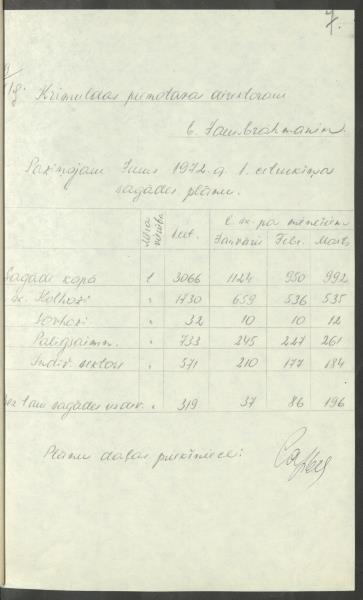 7.
Krimuldas pienotavas direktoram
b. Jansbrahmanim.
Paziņojam Jums 1972.g. 1. ceturkšņa
sagādes plānu.
Mēra vienība
kvt.
t. sk. pa mēnešiem
Janvāris Febr. Marts
Sagāde kopā t 3066 1124 950 992
sk. Kolhozi " 1730 659 536 535
Sovhozi " 32 10 10 12
Palīgsaimn. " 733 245 227 261
Indiv. sektors " 571 210 177 184
bez tam sagādes izdev. " 319 37 86 196
Plānu daļas priekšniece: